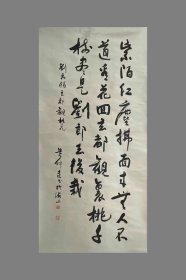 紫陌紅塵拂面來無人不
道看花回玄都觀裏桃千
樹盡是劉郎去後栽
劉禹錫玄都觀桃花